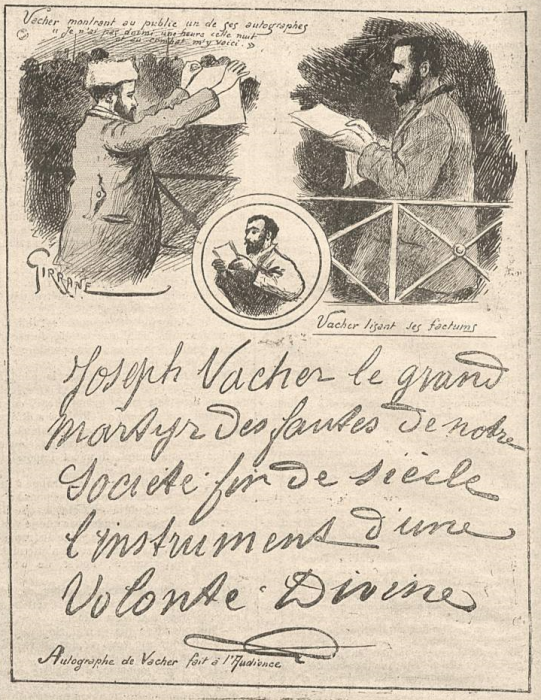 Vacher montrant au public un de ses autographes
"Je n'ai pas dormi une heure cette nuit
et au combat m'y voici."
GIRRANE
Vacher lisant ses factums
Joseph Vacher le grand
martyr des fautes de notre
Société fin de siècle
l'instrument d'une
Volonté Divine
Autographe de Vacher fait à l'Audience